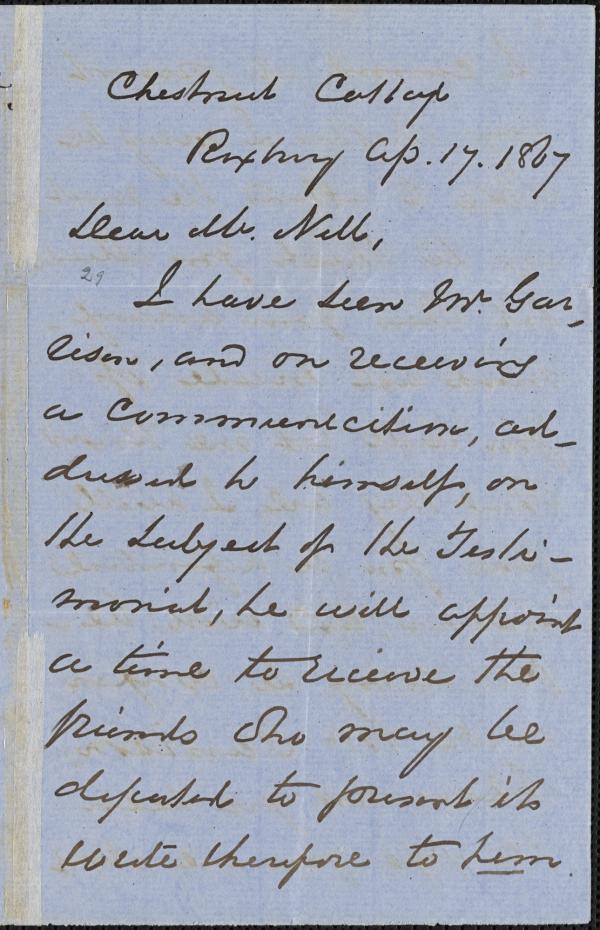 Chestnut Cottage
Roxbury Ap. 17. 1867
Dear Mr. Nell,
29
I have seen Mr. Gar-
rison, and on receiving
a communication, ad-
dressed to himself, on
the subject of the Testi-
monial, he will appoint
a time to receive the
friends who may be
deputed to present it.
Write therefore to him.